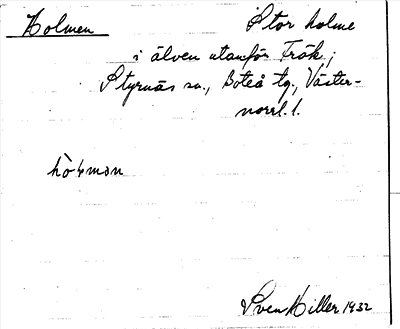 Holmen
Stor holme
i älven utanför Frök;
Styrnäs sn., Boteå tg., Väster-
norrl. l.
Sven Hiller 1932